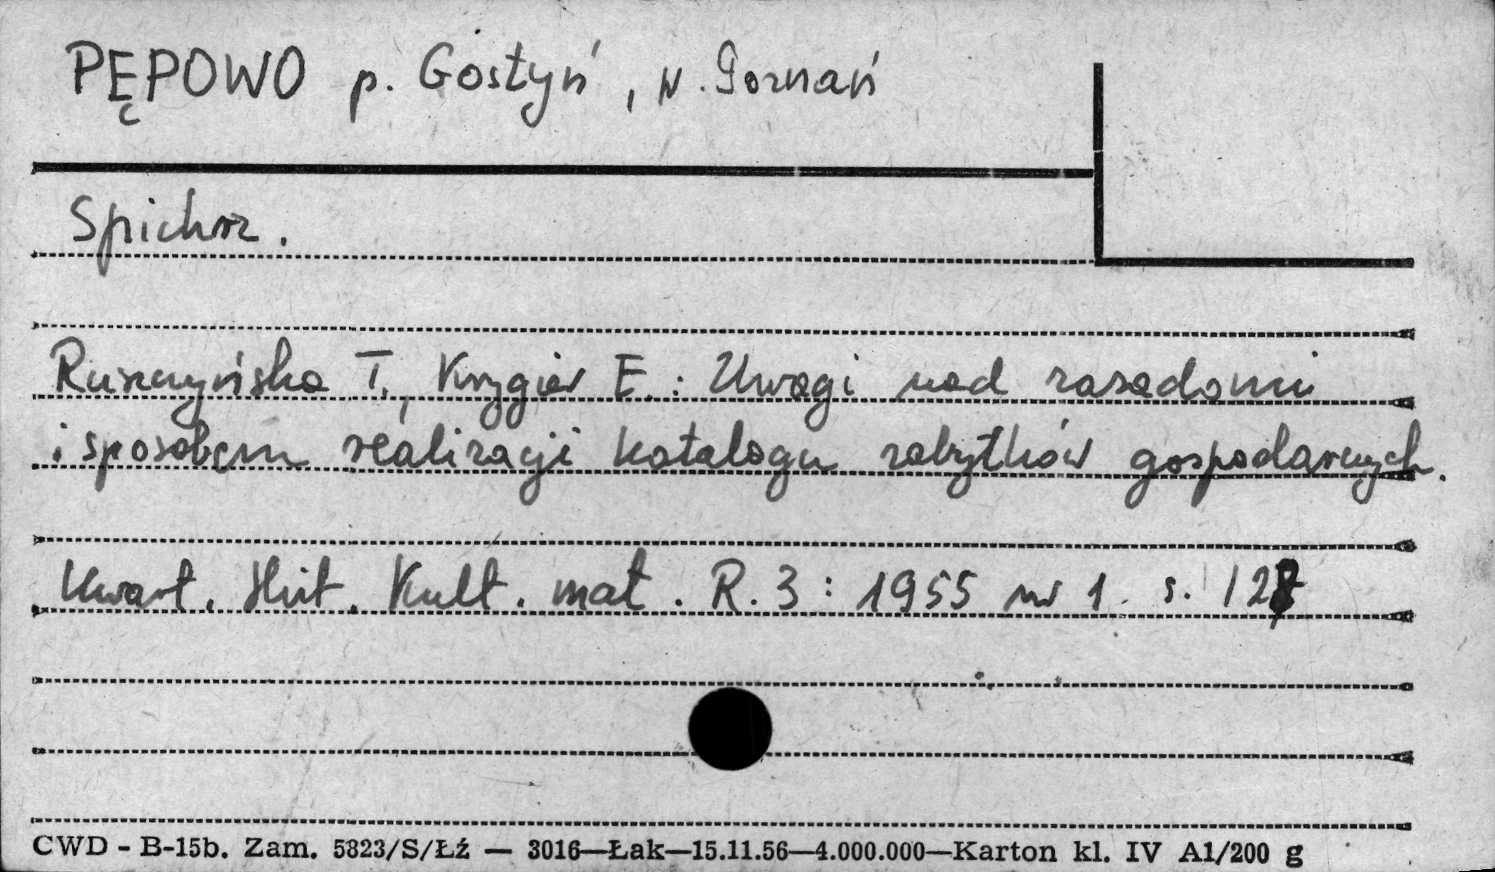 PĘPOWO p. Gostyń, w. Poznań
Spichrz.
Ruszczyńska T., Krygier E.: Uwagi nad zasadami
i sposobem realizacji katalogu zabytków gospodarczych.
Kwart. Hist. Kult. mat. R. 3: 1955 nr 1. s.
CWD - B-15b. Zam. 5823/S/Łź — 3016—Łak—15.11.56—4.000.000—Karton kl. IV A1/200 g